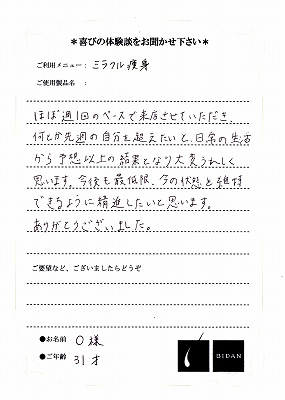 ＊喜びの体験談をお聞かせ下さい＊
ご利用メニュー： ミラクル痩身
ご使用製品名 ：
ほぼ週1回のペースで来店させていただき
何とか先週の自分を超えたいと、日常の生活
から予想以上の結果となり大変うれしく
思います。今後も最低限、今の状態を維持
できるように精進したいと思います。
ありがとうございました。
ご要望など、ございましたらどうぞ
●お名前 O様
●ご年齢 31才
BIDAN